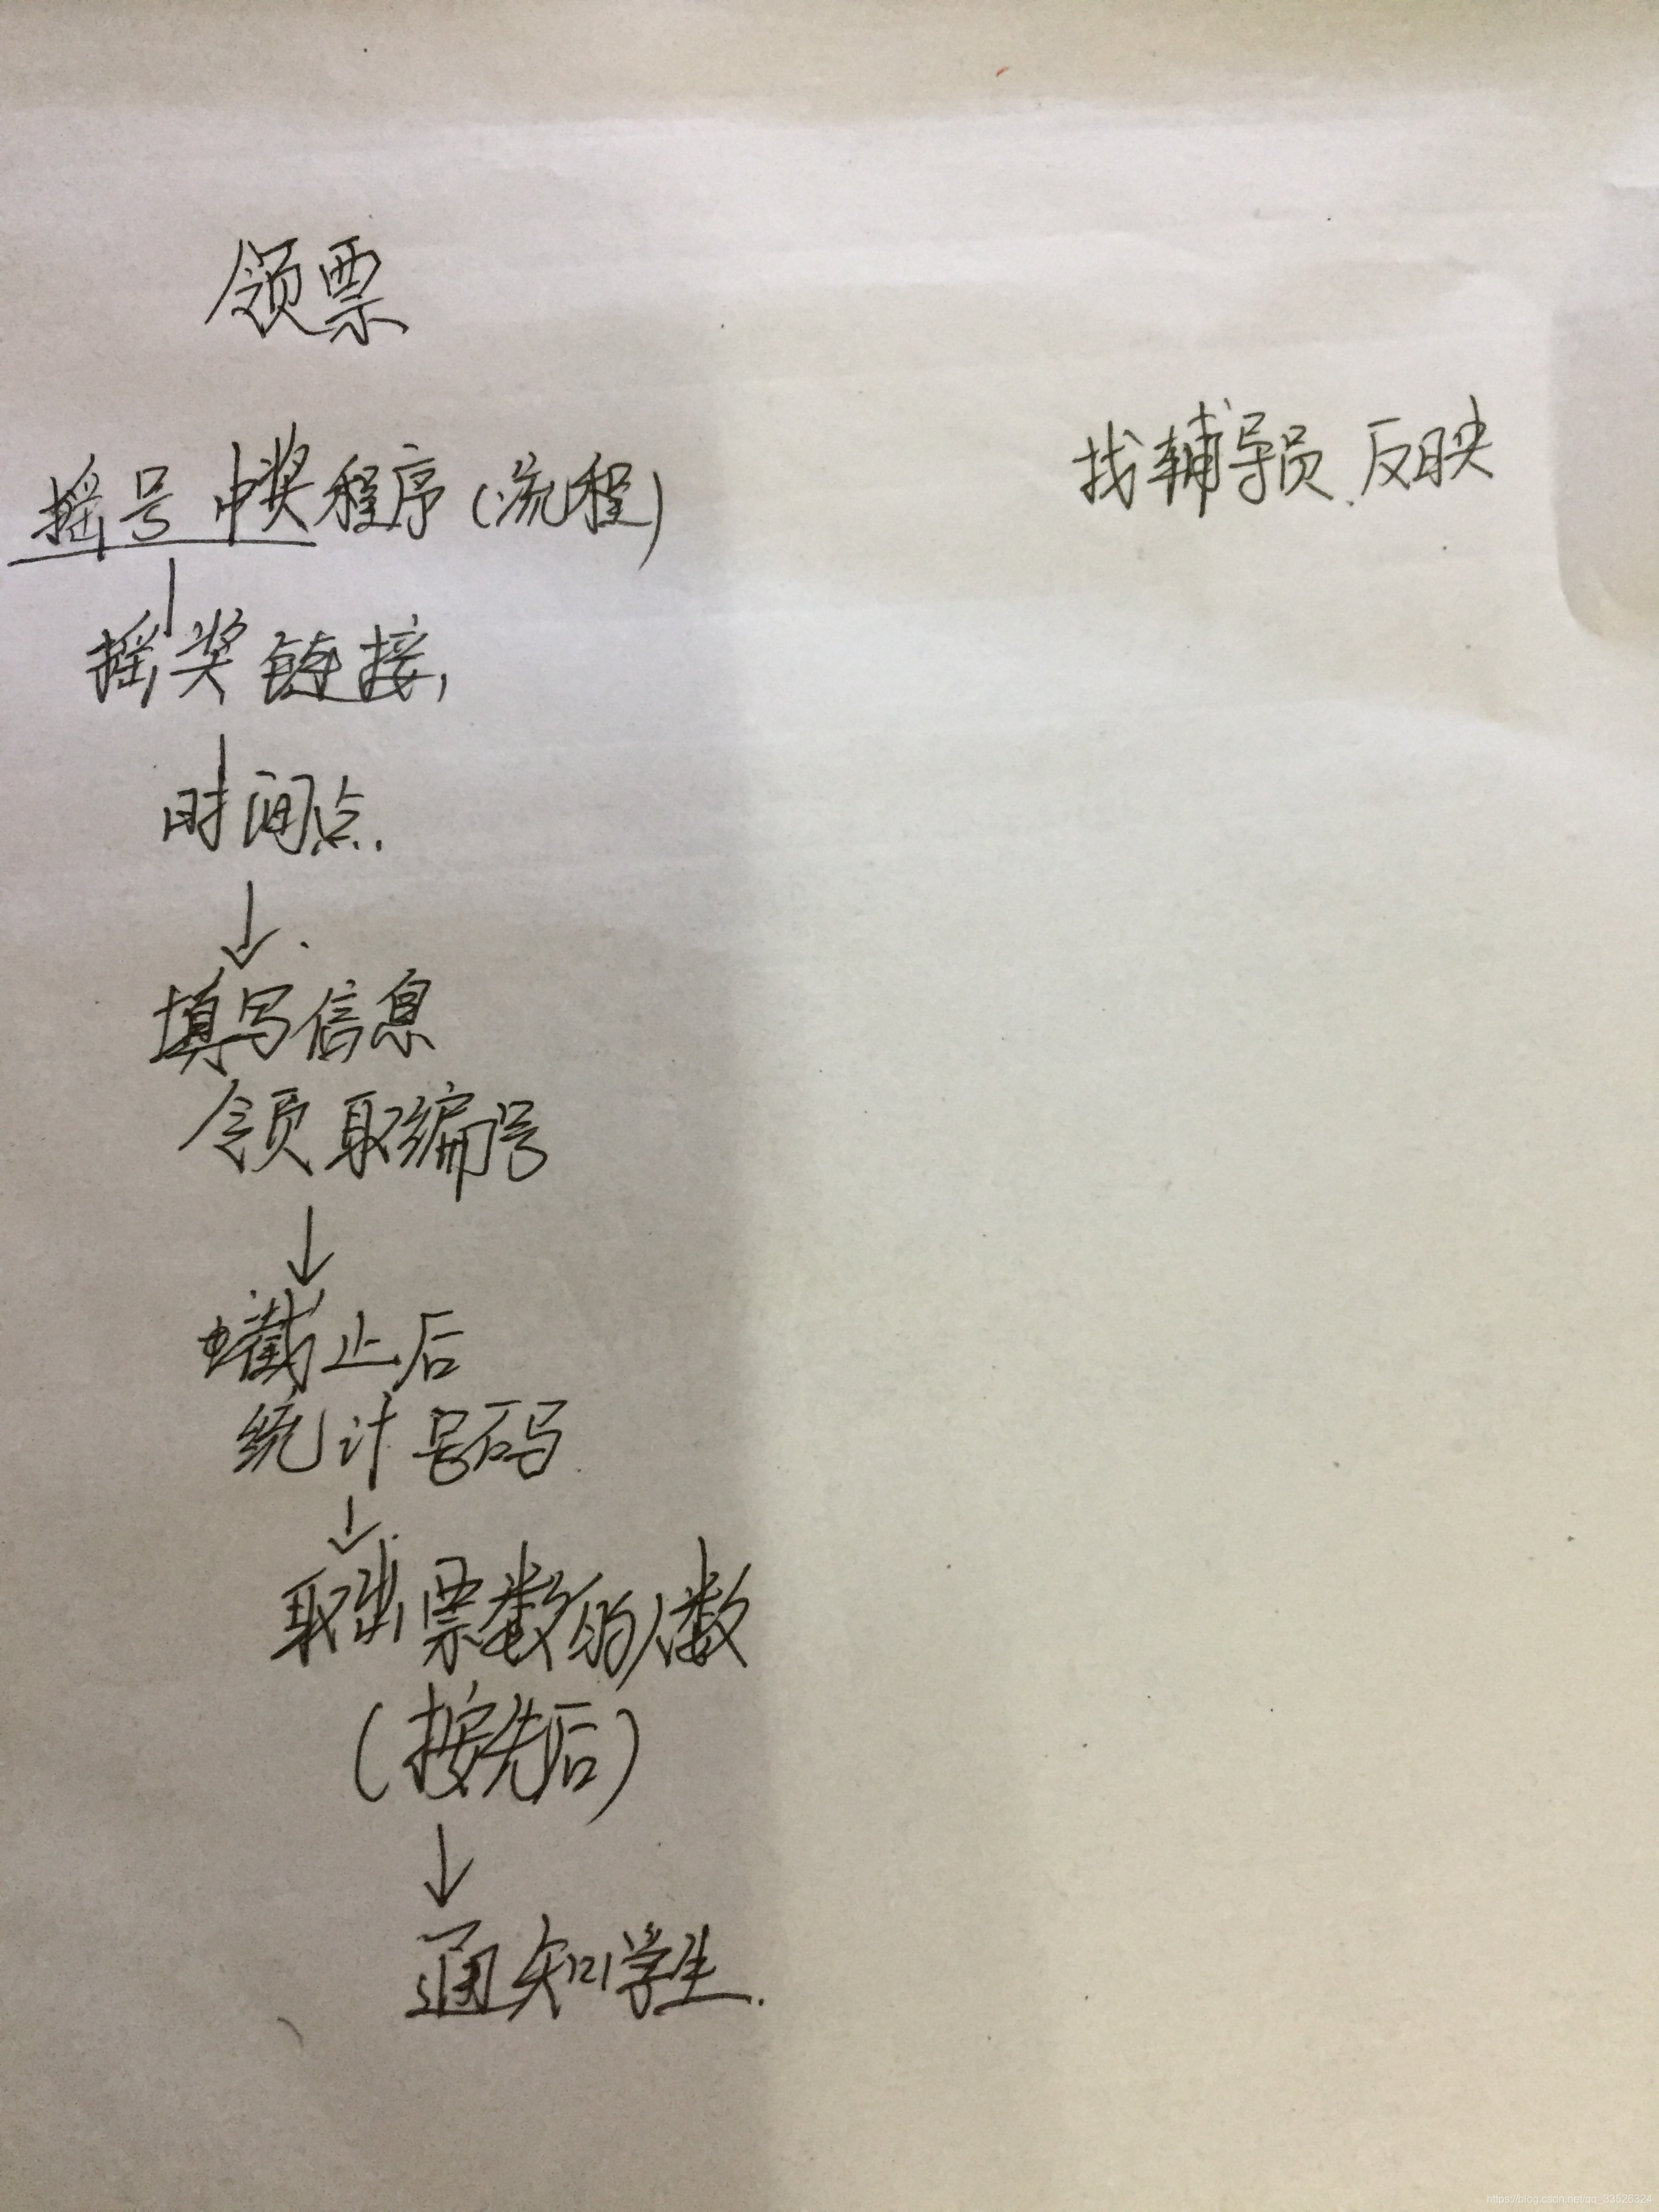 领票
找辅导员.反映
摇号中奖程序(流程)
摇奖链接,
时间点.
填写信息
领取编号
截止后
统计号码
取出票数的人数
(按先后)
通知学生.
https://blog.csdn.net/qq_33526324